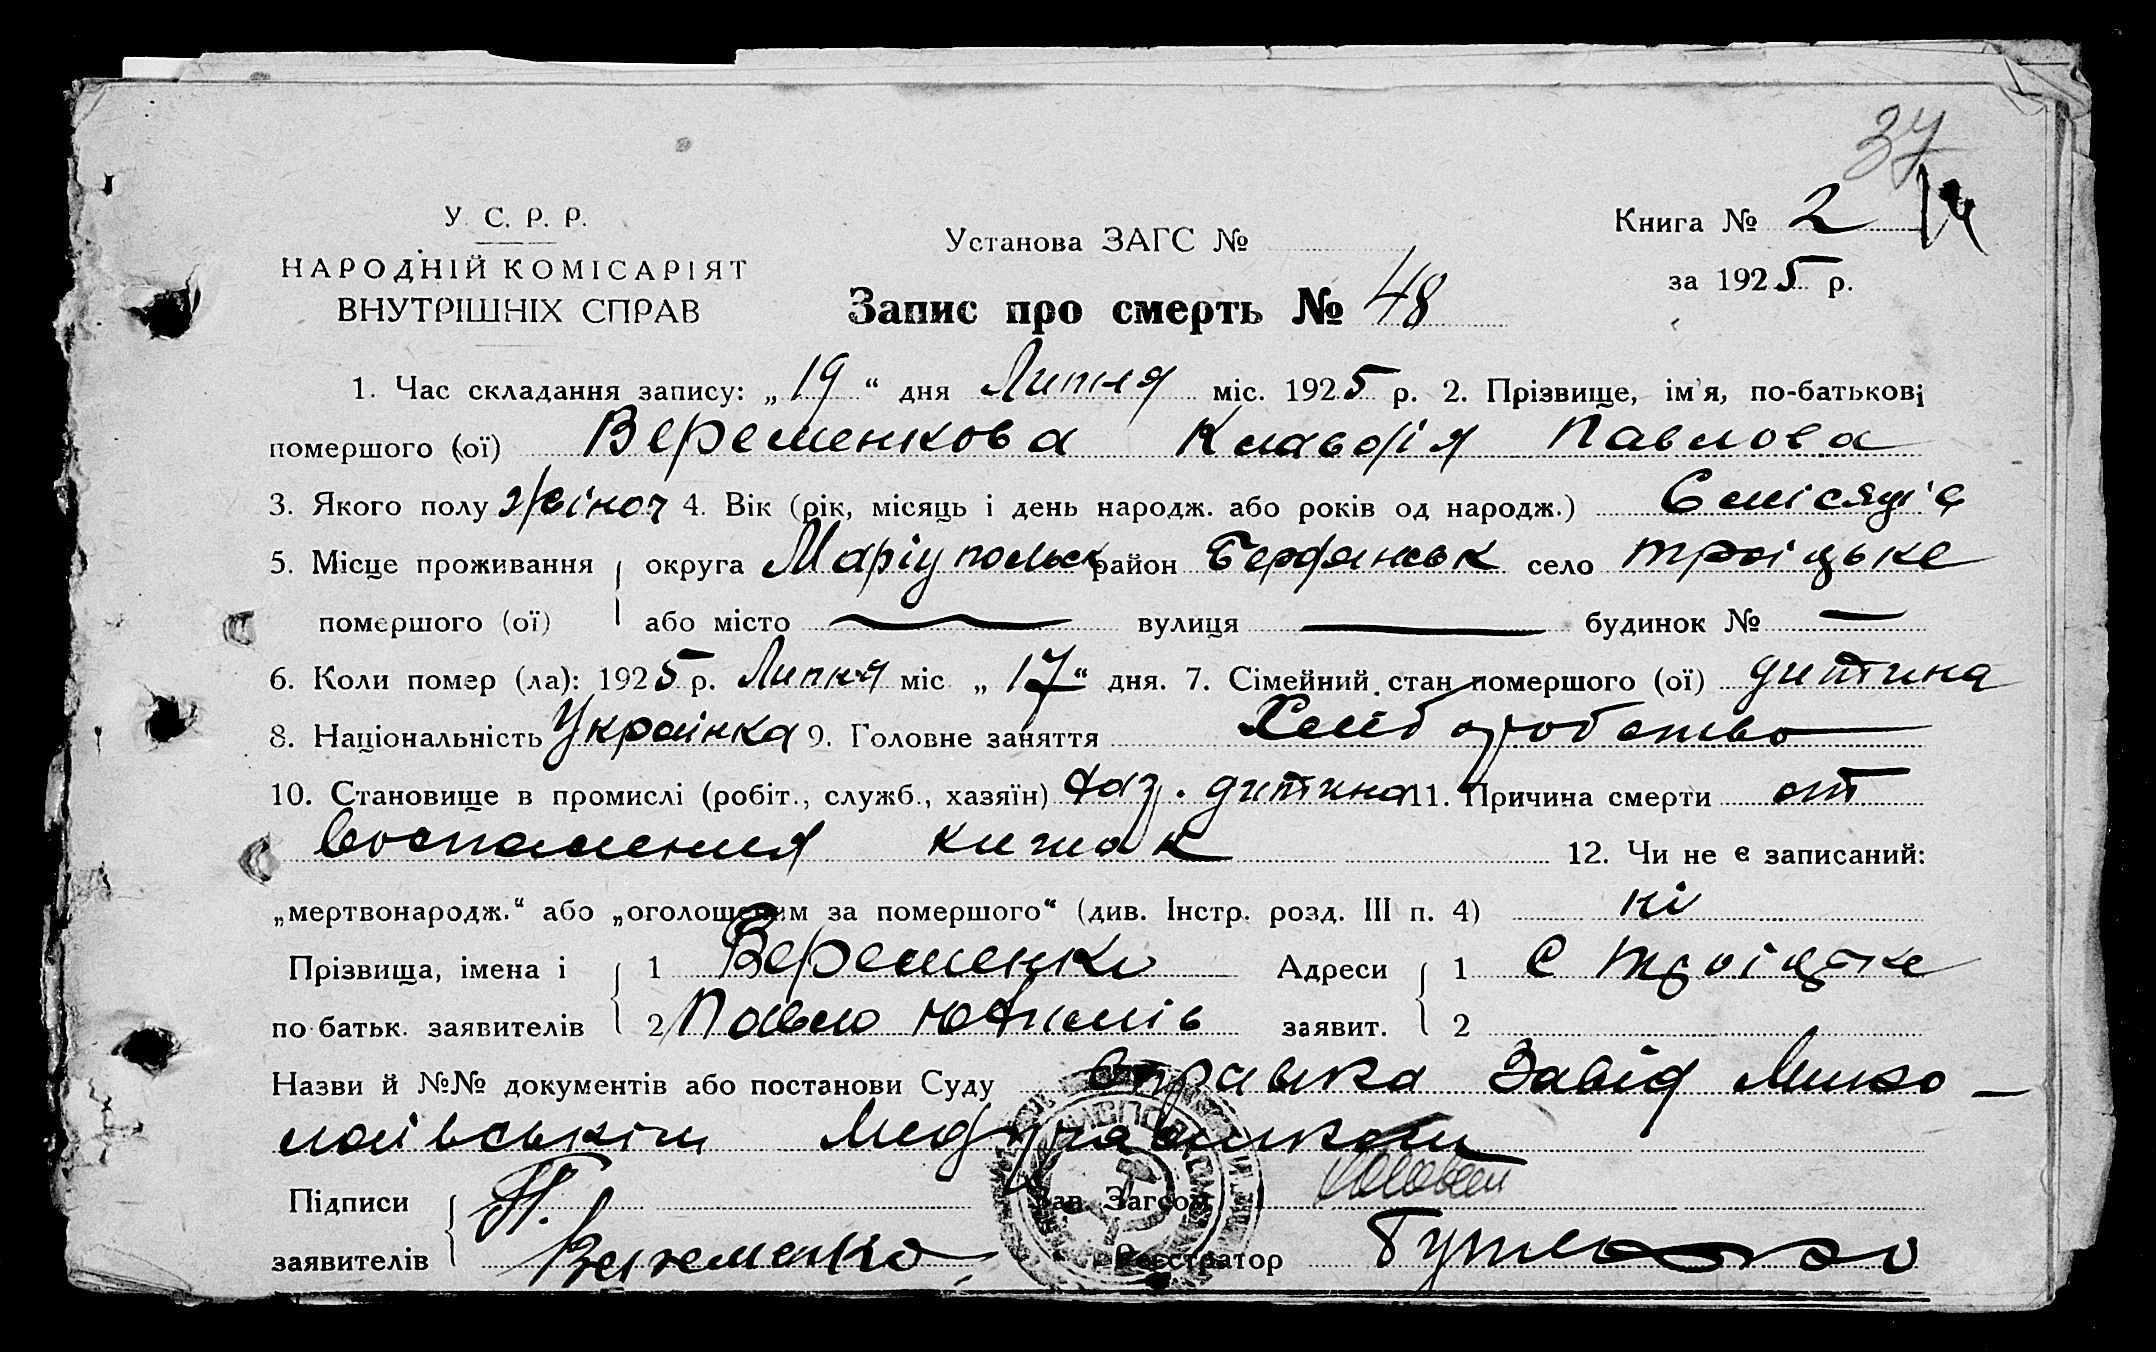 37
У. С. Р. Р.
НАРОДНІЙ КОМІСАРІЯТ
ВНУТРІШНІХ СПРАВ
Установа ЗАГС №
Запис про смерть № 48
Книга № 2
за 1925 р.
1. Час складання запису: „19“ дня Липня міс. 1925 р. 2. Прізвище, ім'я, по-батькові
помершого (ої) Веременкова Клавдія Павлова
3. Якого полу жіноч 4. Вік (рік, місяць і день народж. або років од народж.) 6 місяців
5. Місце проживання округа Маріупольськ район Бердянськ село Троіцьке
помершого (ої) або місто — вулиця — будинок № —
6. Коли помер (ла): 1925 р. Липня міс. „17“ дня. 7. Сімейний стан помершого (ої) дитина
8. Національність Украінка 9. Головне заняття Хліборобство
10. Становище в промислі (робіт., служб., хазяїн) дитина 11. Причина смерти от
воспаления кишок 12. Чи не є записаний:
„мертвонародж.“ або „оголошеним за помершого“ (див. Інстр. розд. III п. 4) ні
Прізвища, імена і 1 Веременко Адреси 1 С Троіцьке
по-батьк. заявителів 2 Павло Юхимів заявит. 2
Назви й №№ документів або постанови Суду Справка Завід Мико-
лаівським
Підписи П. Зав. Загсом
заявителів Веременко Реєстратор